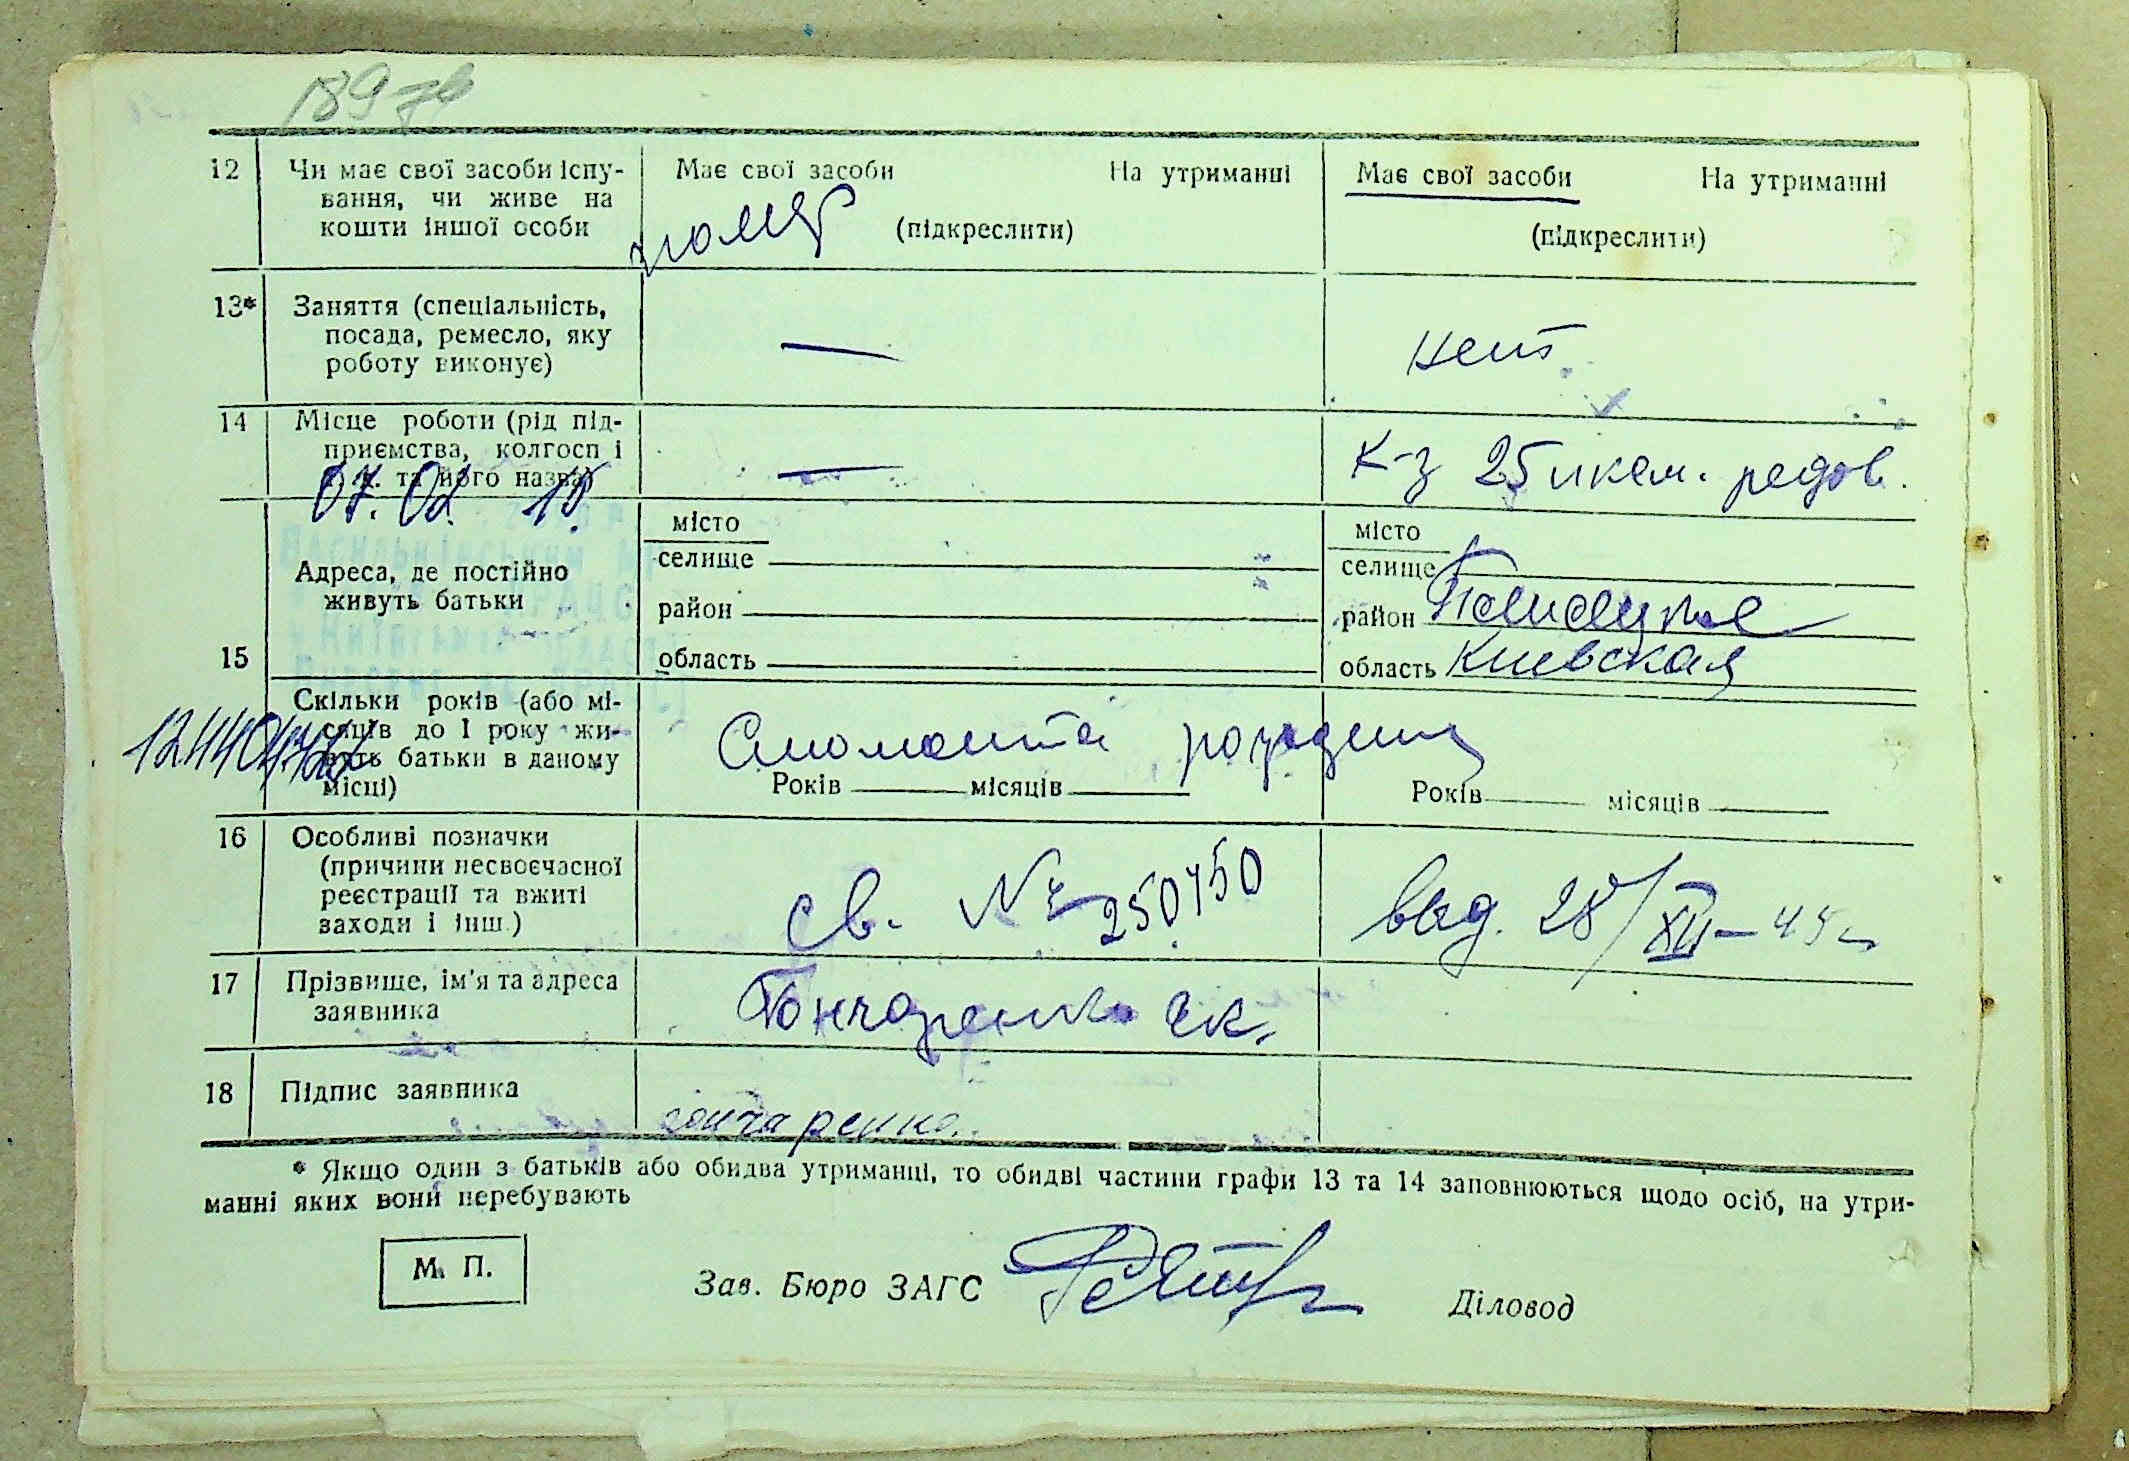 189
12 Чи має свої засоби існу- Має свої засоби На утриманні Має свої засоби На утриманні
вання, чи живе на
кошти іншої особи (підкреслити) (підкреслити)
13* Заняття (спеціальність,
посада, ремесло, яку — нет
роботу виконує)
14 Місце роботи (рід під-
приємства, колгосп і — К-з 25
та його назва)
07. 02. 10.
місто місто
селище селище
Адреса, де постійно
живуть батьки район район
15 область область Киевская
Скільки років (або мі-
сяців до 1 року жи-
вуть батьки в даному
місці) Років місяців Років місяців
16 Особливі позначки
(причини несвоєчасної
реєстрації та вжиті св. № 250750 выд. 28/XII-45г
заходи і інш.)
17 Прізвище, ім'я та адреса Гончаренко Ек.
заявника
18 Підпис заявника гончаренко.
* Якщо один з батьків або обидва утриманці, то обидві частини графи 13 та 14 заповнюються щодо осіб, на утри-
манні яких вони перебувають
М. П. Зав. Бюро ЗАГС Діловод